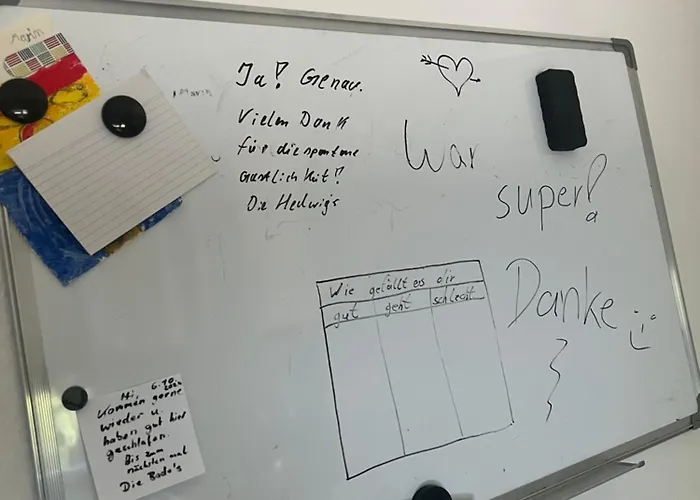 Marin
Ja! Genau.
Vielen Dank
für die spontane
Gastlichkeit!
Die Hedwigs
War
super!
Danke :)
Wie gefällt es dir
gut geht schlecht
Hi, 6.10.
Kommen gerne
wieder u.
haben gut hier
geschlafen.
Bis zum
nächsten mal
Die Bode's